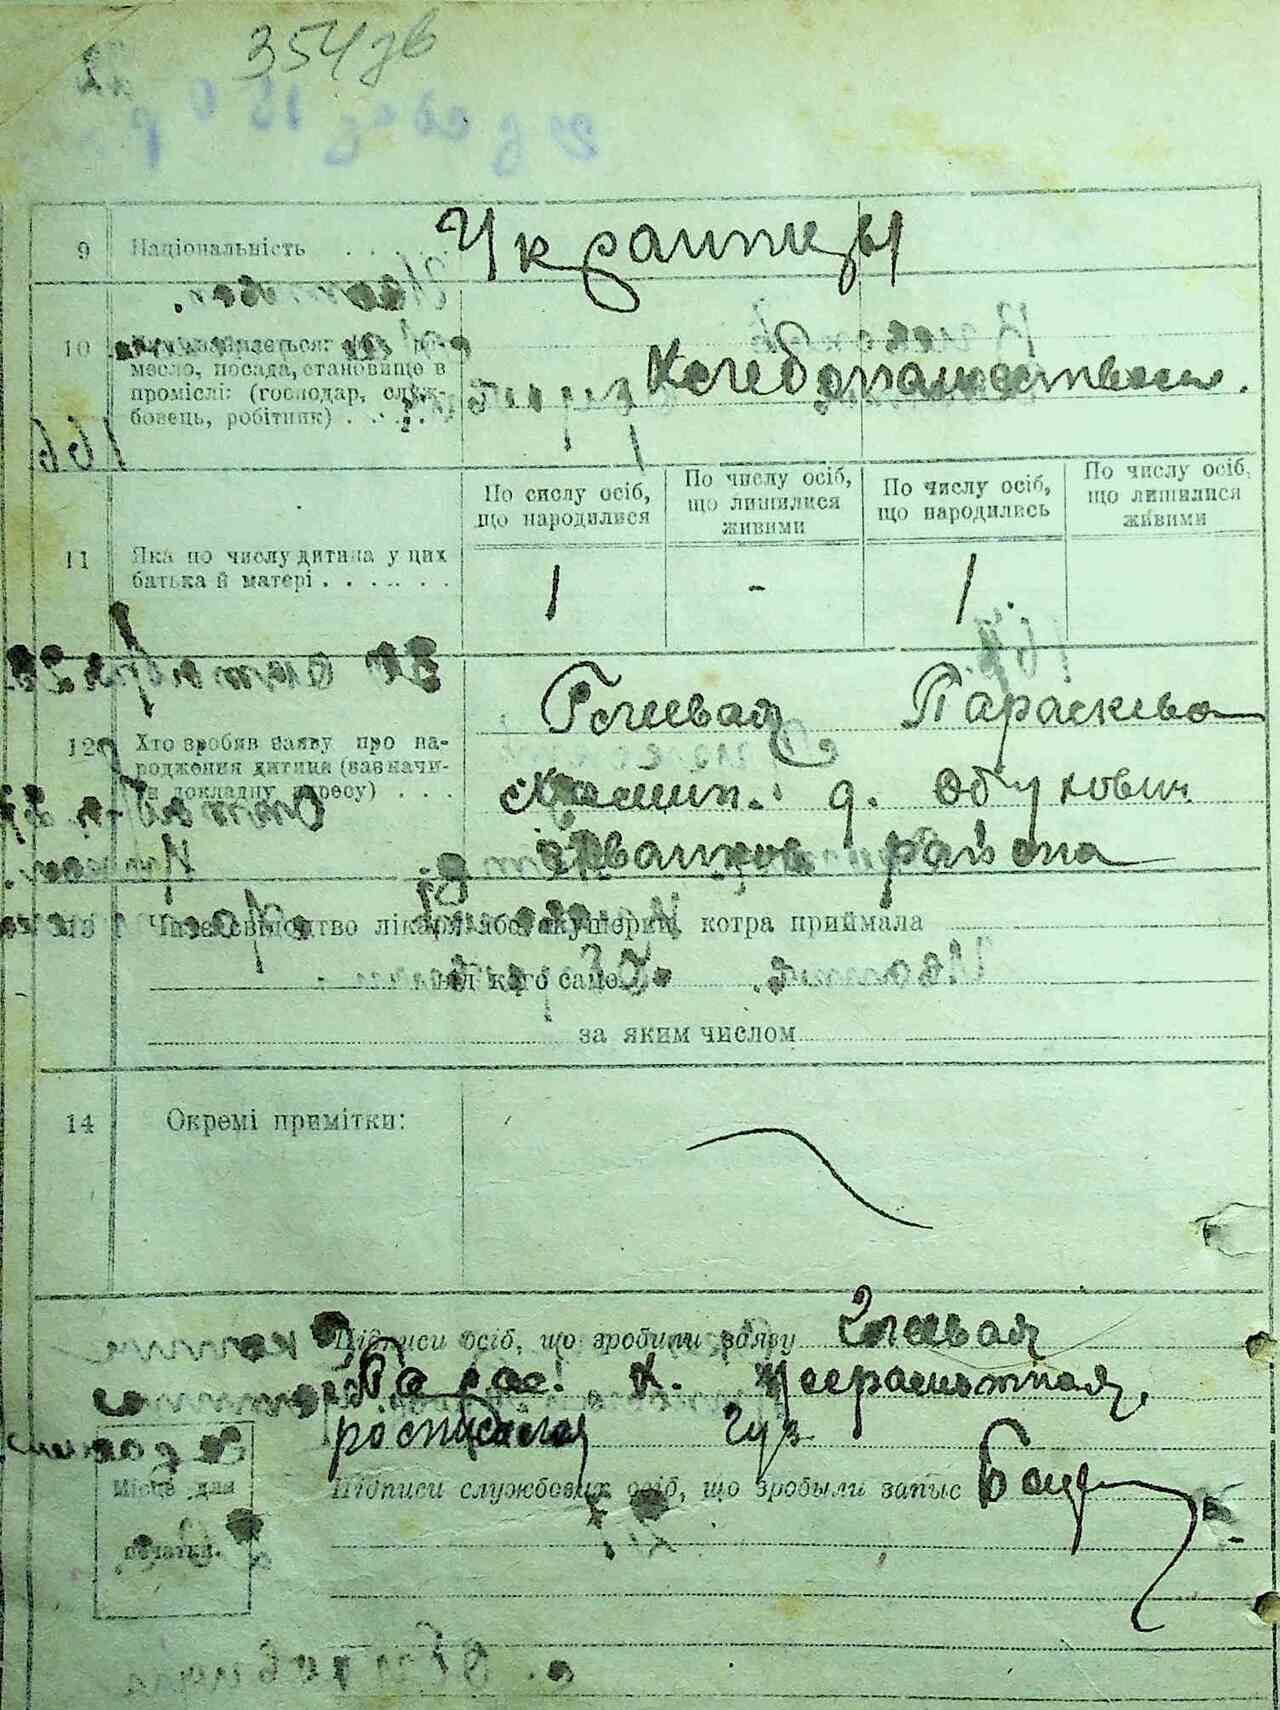 354 зв
9 Національність . . . Украинцы
10
месло, посада, становище в
проміслі: (господар, служ-
бовець, робітник) . . . . . Хлебопашеством.
По сислу осіб, що народилися
По числу осіб, що лишилися живими
По числу осіб, що народились
По числу осіб, що лишилися живими
11 Яка по числу дитина у цих
батька й матері . . . . . . . 1 - 1
12 Хто зробив заяву про на-
родження дитини (зазначи-
ти докладну адресу) . . . .
Параскева
д. Обухович
Иванков района
13 Чи є свідоцтво лікаря або акушерки, котра приймала
від кого саме
за яким числом
14 Окремі примітки:
Підписи осіб, що зробили заяву
Парас. А. неграмотная,
росписался Гуз
Місце для
печатки.
Підписи службових осіб, що зробыли запыс